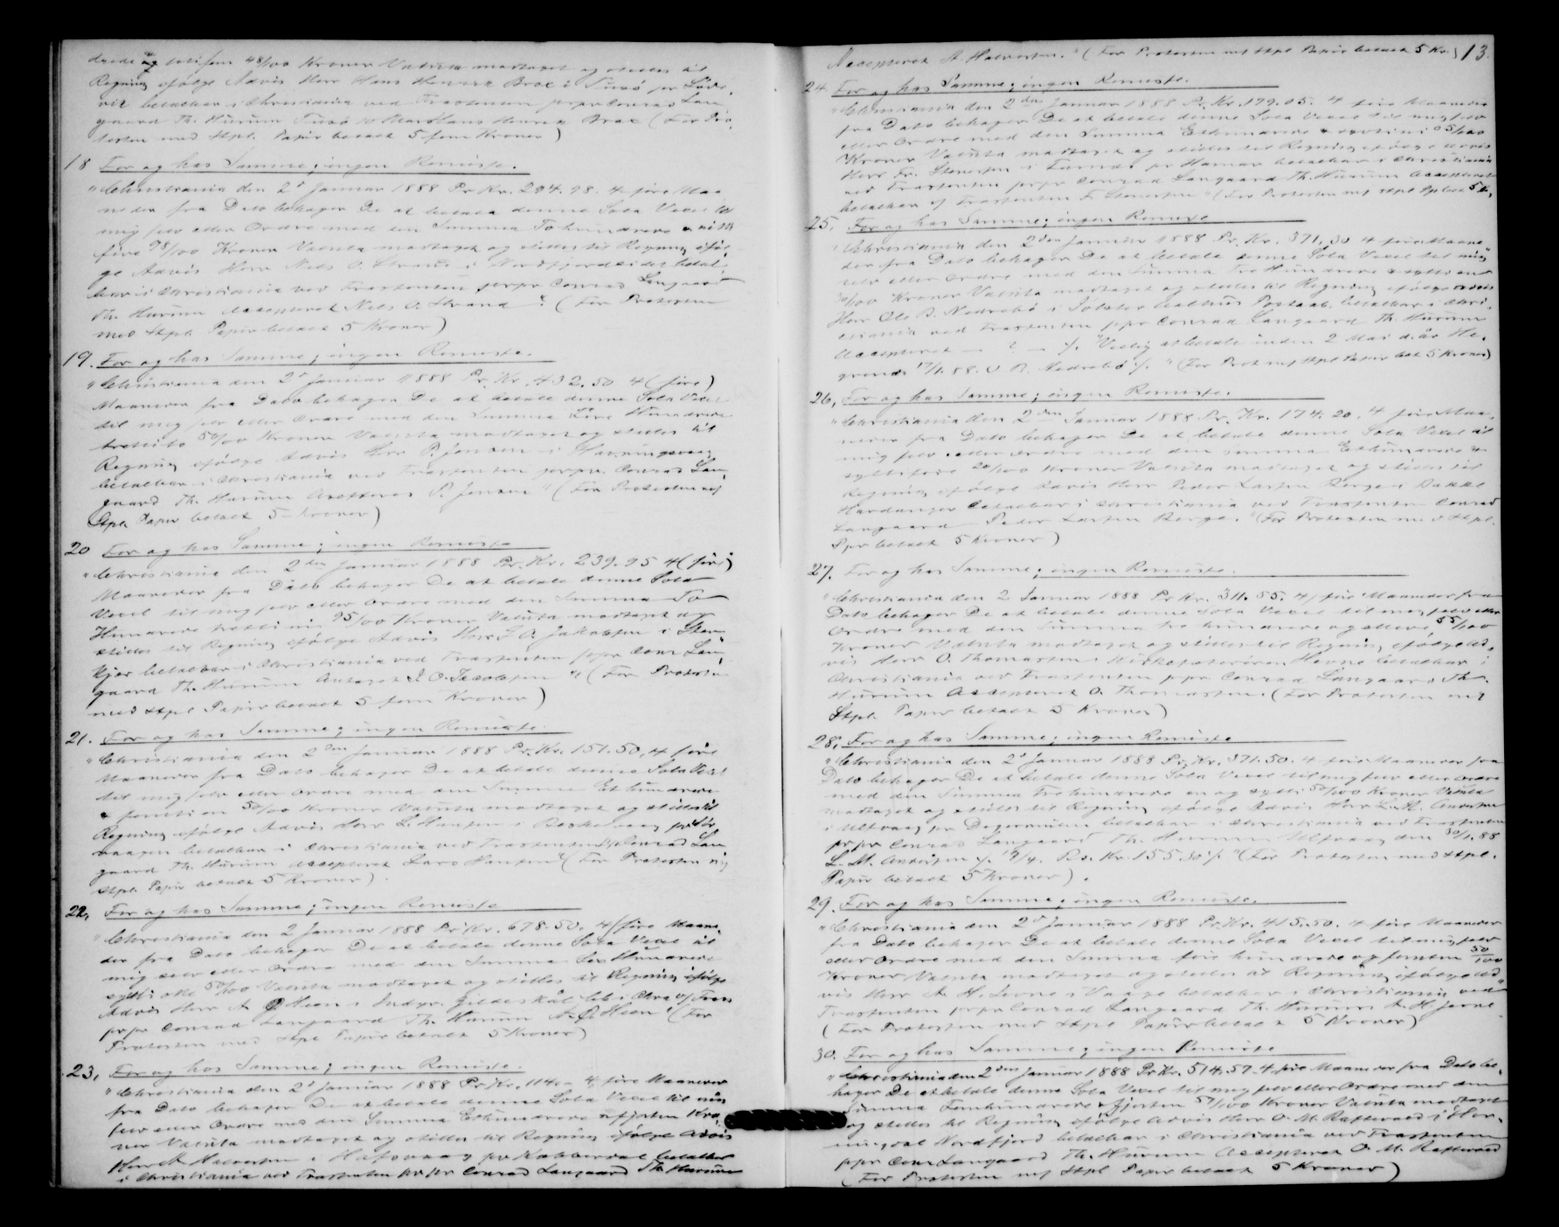 drede og toti fem 48/100 Kroner Valuta modtaget og stilles til
Regning ifølge Advis Herr Hans Brox i
vik betalbar i Christiania ved Trassenten pr pr Conrad Lan
gaard Th. Hurum Brox (For Pro
testen med Stpl. Papir betalt 5 fem Kroner)
18 For og hos Samme; ingen Remisse.
"Christiania den 2 Januar 1888 Pr. Kr. 294.98. 4 fire Maa
neder fra Dato behager De at betale denne Sola Vexel til
mig selv eller Ordre med den Summa To hundrede & nitti
fire 98/100 Kroner Valuta modtaget og stilles til Regning iføl
ge Advis Herr Nels O. Strand i Nordfjordeidet betal
bar i Christiania ved Trassenten pr pr Conrad Langaard
Th. Hurum Accepteret Nels O. Strand" (For Protesten
med Stpl. Papir betalt 5 Kroner)
19. For og hos Samme; ingen Remisse.
"Christiania den 2 Januar 1888 Pr. Kr. 432.50 4 (fire)
Maaneder fra Dato behager De at betale denne Sola Vexel
til mig selv eller Ordre med den Summa Fire Hundrede
tretti to 50/100 Kroner Valuta modtaget og stilles til
Regning ifølge Advis Herr P. Jensen i
betalbar i Christiania ved Trassenten pr pr. Conrad Lan
gaard Th. Hurum Accepteret P. Jensen" (For Protesten og
Stpl. Papir betalt 5 Kroner)
20 For og hos Samme; ingen Remisse
"Christiania den 2den Januar 1888 Pr. Kr. 239.95 4 (fire)
Maaneder fra Dato behager De at betale denne Sola
Vexel til mig selv eller Ordre med den Summa To
Hundrede tretti ni 95/100 Kroner Valuta modtaget og
stilles til Regning ifølge Advis Herr I. O. Jakobsen i Sten
kjær betalbar i Christiania ved Trassenten pr pr Conr Lan
gaard Th. Hurum Antaget I. O. Jacobsen" (For Protesten
med Stpl. Papir betalt 5 fem Kroner)
21. For og hos Samme; ingen Remisse.
"Christiania den 2den Januar 1888 Pr. Kr. 151.50, 4 fire
Maaneder fra Dato behager De at betale denne Sola Vexel
til mig selv eller Ordre med den Summa Et hundrede
& femti en 50/100 Kroner Valuta modtaget og stilles til
Regning ifølge Advis Herr L. Hansen i
vaagen betalbar i Christiania ved Trassenten Conrad Lan
gaard Th. Hurum Accepteret Lars Hansen" (For Protesten og
Stpl. Papir betalt 5 Kroner).
22. For og hos Samme; ingen Remisse
"Christiania den 2 Januar 1888 Pr. Kr. 678.50. 4 (fire Maane
der fra Dato behager De at betale denne Sola Vexel til
mig selv eller Ordre med den Summa Sex Hundrede
sytti otte 50/100 Valuta modtaget og stilles til Regning ifølge
Advis Herr A. O. Steen i Indyr. Gildeskål
pr pr Conrad Langaard Th. Hurum A. O. Steen" (For
Protesten med Stpl. Papir betalt 5 Kroner)
23, For og hos Samme; ingen Remisse.
"Christiania den 2 Januar 1888 Pr. Kr. 114.- 4 fire Maaneder
fra Dato behager De at betale denne Sola Vexel til mig
selv eller Ordre med den Summa Ethundrede & fjorten Kro
ner Valuta modtaget og stilles til Regning ifølge Advis
Herr A. Halvorsen i betalbar
i Christiania ved Trassenten pr pr Conrad Langaard Th. Hurum
Accepteret A. Halvorsen." (For Protesten og Stpl. Papir betalt 5 Kr.) 13.
24. For og hos Samme; ingen Remisse.
"Christiania den 2den Januar 1888 Pr. Kr. 179.05. 4 fire Maaneder
fra Dato behager De at betale denne Sola Vexel til mig selv
eller Ordre med den Summa Ethundrede & sytti ni 05/100
Kroner Valuta modtaget og stilles til Regning ifølge Advis
Herr Fr. Stenersen i pr Hamar betalbar i Christiania
ved Trassenten pr pr Conrad Langaard Th. Hurum Accepteret
betalbar af Trassenten F. Stenersen" (For Protesten og Stpl. Pp. bet. 5 Kr.
25. For og hos Samme; ingen Remisse
"Christiania den 2den Januar 1888 Pr. Kr. 371,30 4 fire Maane
der fra Dato behager De at betale denne Sola Vexel til mig
selv eller Ordre med den Summa Tre Hundrede & sytti en
30/100 Kroner Valuta modtaget og stilles til Regning ifølge Advis
Herr Ole B. Nedrebö i Jölster Postaab. betalbar i Chri
stiania ved Trassenten pr pr Conrad Langaard Th. Hurum
Accepteret — ? — ./. Villig at betale inden 2 Mai
17/1. 88. O. B. Nedrebö ./." (For Prot og Stpl Papir bet 5 Kroner)
26, For og hos Samme; ingen Remisse.
"Christiania den 2den Januar 1888 Pr. Kr. 174.20. 4 fire Maa
neder fra Dato behager De at betale denne Sola Vexel til
mig selv eller Ordre med den Summa Ethundrede &
sytti fire 20/100 Kroner Valuta modtaget og stilles til
Regning ifølge Advis Herr Peder Larsen Berge i
Hardanger betalbar i Christiania ved Trassenten Conrad
Langaard Peder Larsen Berge." (For Protesten med Stpl.
Ppr betalt 5 Kroner)
27. For og hos Samme; ingen Remisse.
"Christiania den 2 Januar 1888 Pr. Kr. 311.55. 4 fire Maaneder fra
Dato behager De at betale denne Sola Vexel til mig selv eller
Ordre med den Summa tre hundrede og elleve 55/100
Kroner Valuta modtaget og stilles til Regning ifølge Ad
vis Herr O. Thomassen i Hevne betalbar i
Christiania ved Trassenten p pr Conrad Langaard Th.
Hurum Accepteret O. Thomassen. (For Protesten og
Stpl. Papir betalt 5 Kroner)
28, For og hos Samme; ingen Remisse
"Christiania den 2 Januar 1888 Pr. Kr. 371.50. 4 fire Maaneder fra
Dato behager De at betale denne Sola Vexel til mig selv eller Ordre
med den Summa Trehundrede en og sytti 50/100 Kroner Valuta
modtaget og stilles til Regning ifølge Advis Herr L. M. Andersen
i Ulfvaag pr betalbar i Christiania ved Trassenten
pr pr Conrad Langaard Th. Hurum Ulfvaag den 30/1. 88
L. M. Andersen ./. Kr. 155.50 ./." (For Protesten med Stpl.
Papir betalt 5 Kroner).
29. For og hos Samme; ingen Remisse.
"Christiania den 2 Januar 1888 Pr. Kr. 415.50. 4 fire Maaneder
fra Dato behager De at betale denne Sola Vexel til mig selv
eller Ordre med den Summa fire hundrede og femten 50/100
Kroner Valuta modtaget og stilles til Regning ifølge Ad
vis Herr A. H. i Vaage betalbar i Christiania ved
Trassenten pr pr Conrad Langaard Th. Hurum A. H.
(For Protesten med Stpl Papir betalt 5 Kroner)
30. For og hos Samme; ingen Remisse
"Christiania den 2den Januar 1888 Pr. Kr. 514.57. 4 fire Maaneder fra Dato be
hager De at betale denne Sola Vexel til mig selv eller Ordre med den
Summa Femhundrede & fjorten 57/100 Kroner Valuta modtaget
og stilles til Regning ifølge Advis Herr O. M. Raftevold i Hor
ningdal Nordfjord betalbar i Christiania ved Trassenten
pr pr Conr Langaard Th. Hurum Accepteret O. M. Raftevold
(For Protesten og Stpl Papir betalt 5 Kroner)